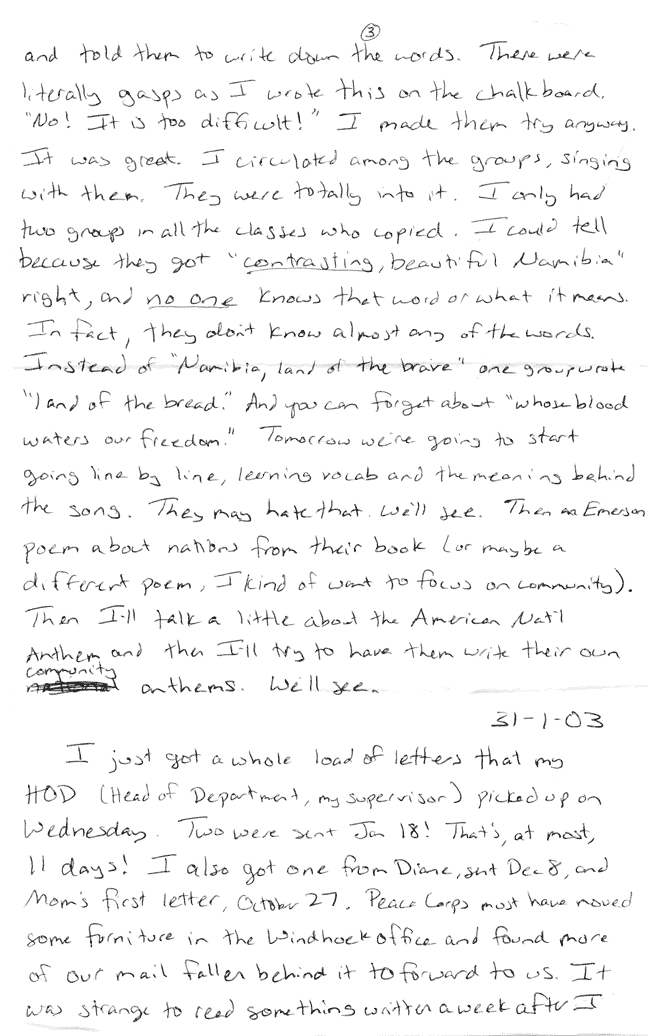 ③
and told them to write down the words. There were
literally gasps as I wrote this on the chalkboard.
"No! It is too difficult!" I made them try anyway.
It was great. I circulated among the groups, singing
with them. They were totally into it. I only had
two groups in all the classes who copied. I could tell
because they got "contrasting, beautiful Namibia"
right, and no one knows that word or what it means.
In fact, they don't know almost any of the words.
Instead of "Namibia, land of the brave" one group wrote
"land of the bread." And you can forget about "whose blood
waters our freedom." Tomorrow we're going to start
going line by line, learning vocab and the meaning behind
the song. They may hate that. We'll see. Then an Emerson
poem about nations from their book (or maybe a
different poem, I kind of want to focus on community).
Then I'll talk a little about the American Nat'l
Anthem and then I'll try to have them write their own
community
anthems. We'll see.
31-1-03
I just got a whole load of letters that my
HOD (Head of Department, my supervisor) picked up on
Wednesday. Two were sent Jan 18! That's, at most,
11 days! I also got one from Diane, sent Dec 8, and
Mom's first letter, October 27. Peace Corps must have moved
some furniture in the Windhoek office and found more
of our mail fallen behind it to forward to us. It
was strange to read something written a week after I